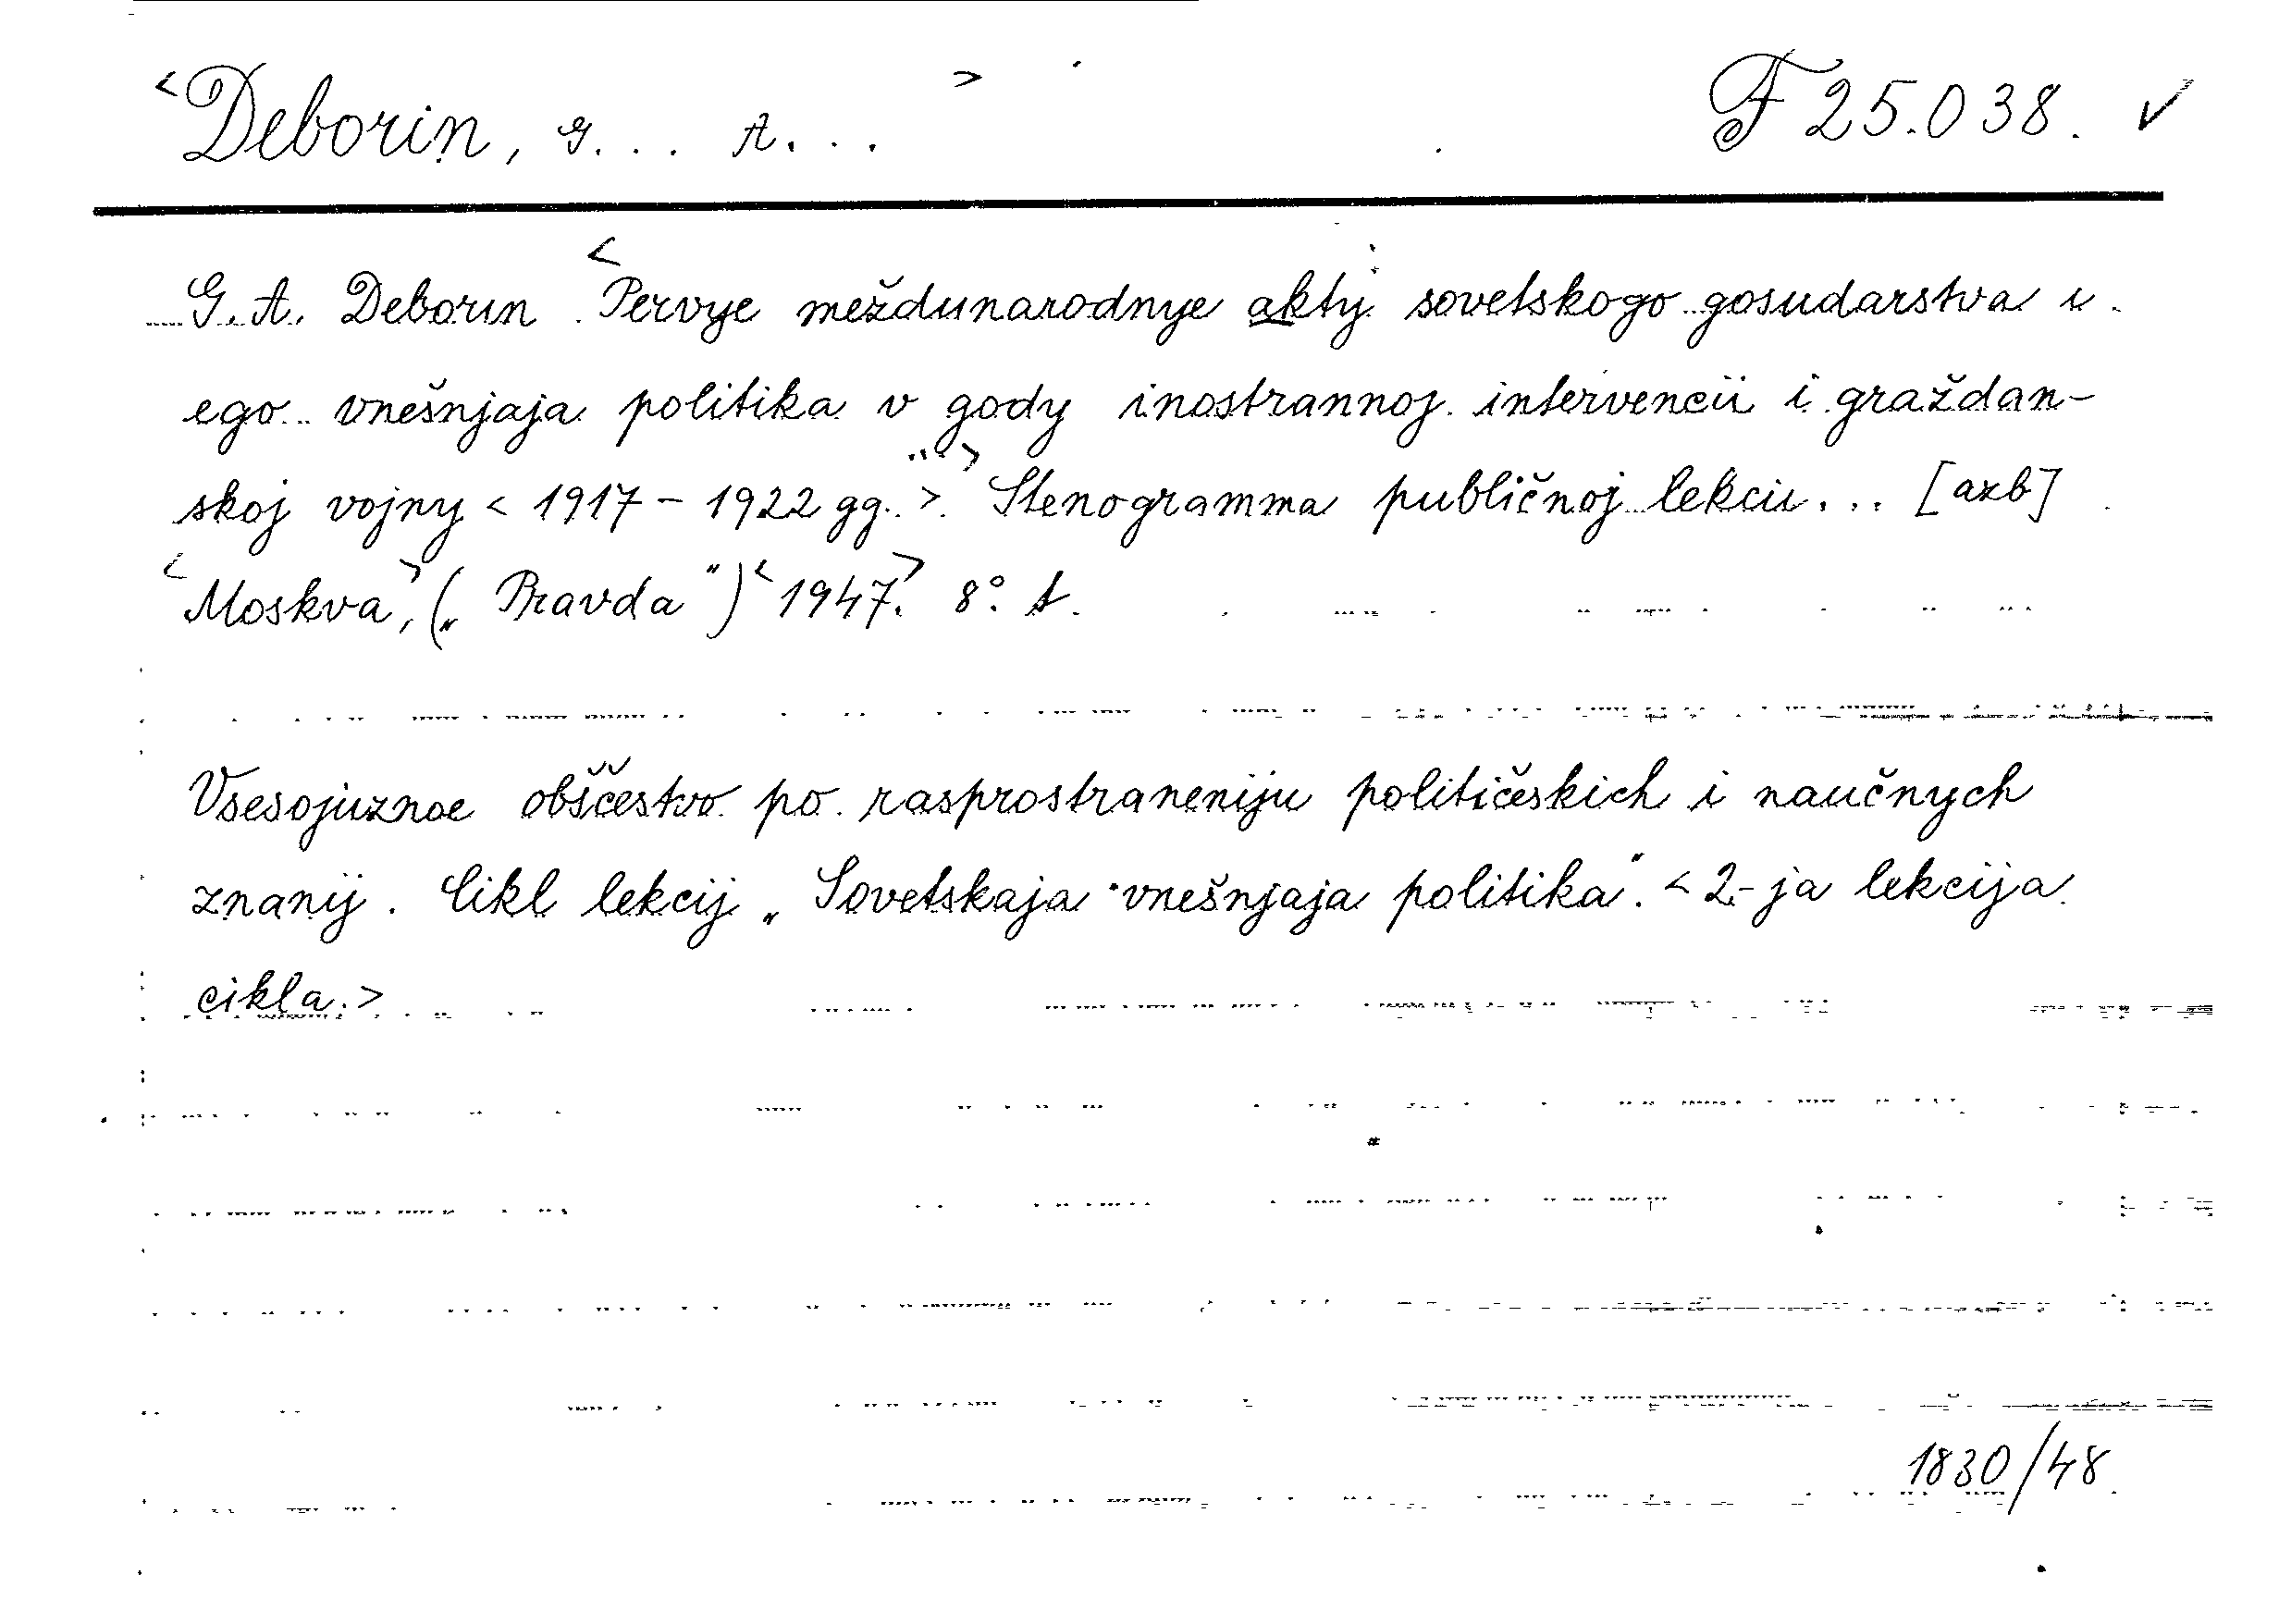 <Deborin, G... A...> F 25.038. ✓
G. A. Deborin <Pervye meždunarodnye akty sovetskogo gosudarstva i
ego vnešnjaja politika v gody inostrannoj intervencii i graždan-
skoj vojny <1917-1922 gg.>.> Stenogramma publičnoj lekcii... [azb]
<Moskva>, („Pravda") <1947>. 8°.
Vsesojuznoe obščestvo po rasprostraneniju političeskich i naučnych
znanij. Cikl lekcij „Sovetskaja vnešnjaja politika". <2-ja lekcija
cikla.>
1830/48